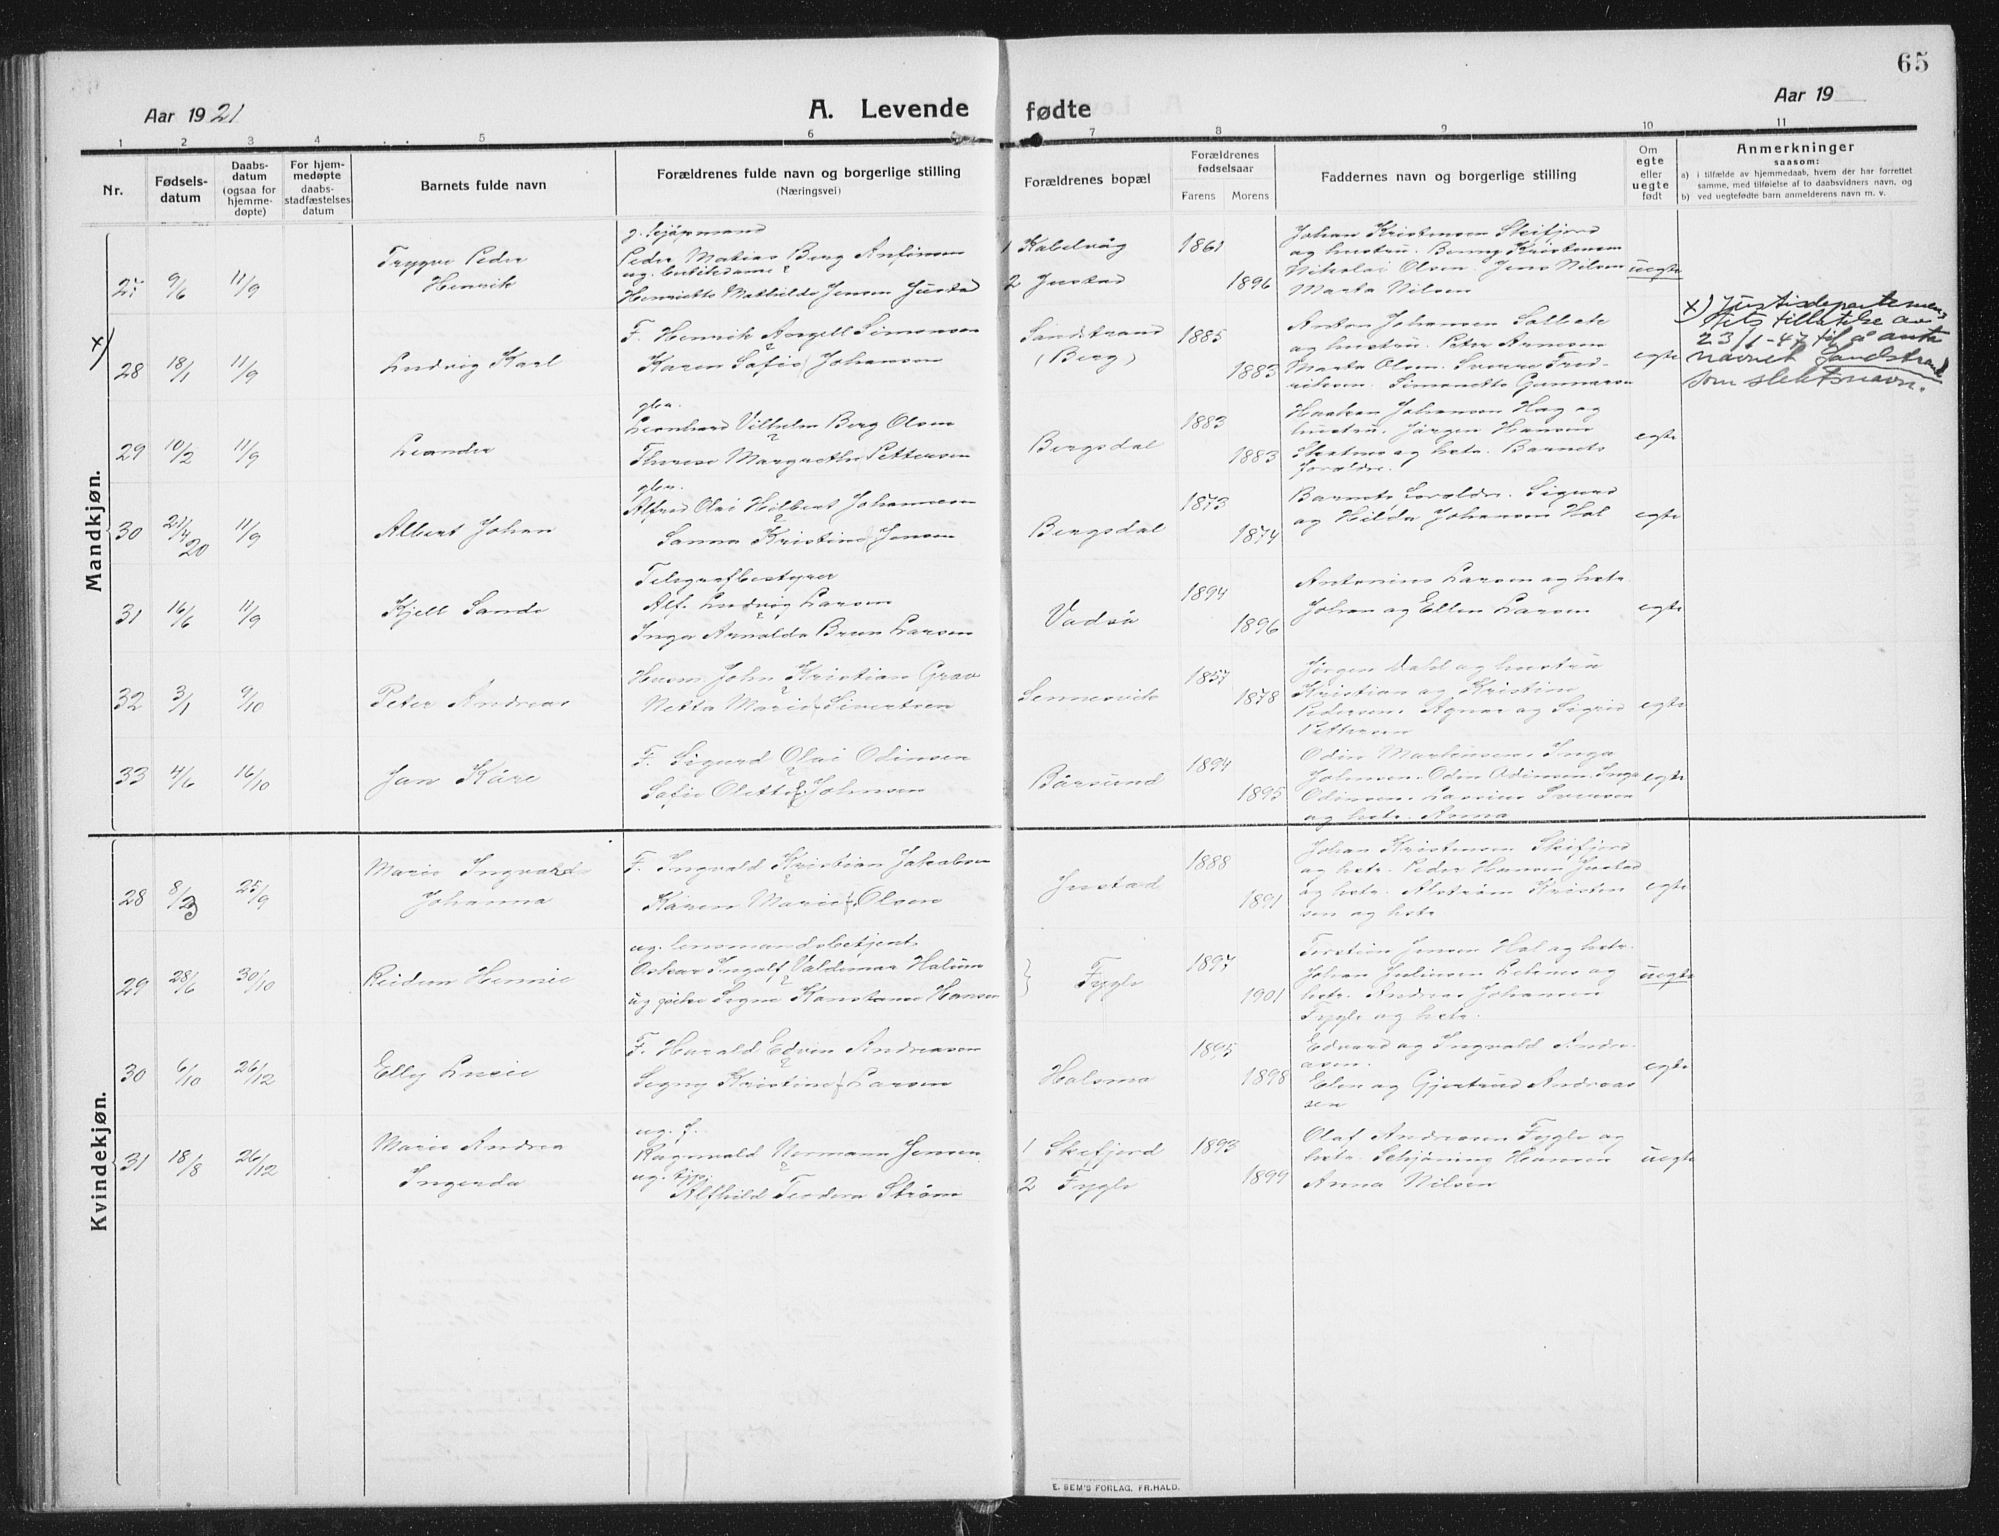 65
Aar 1921
A. Levende fødte
Aar 19
1 2 3 4 5 6 7 8 9 10 11
Nr.
Fødsels-
datum
Daabs-
datum
(ogsaa for
hjemme-
døpte)
For hjem-
medøpte
daabs-
stadfæstelses
datum
Barnets fulde navn
Forældrenes fulde navn og borgerlige stilling
(Næringsvei)
Forældrenes bopæl
Forældrenes
fødselsaar
Farens Morens
Faddernes navn og borgerlige stilling
Om
egte
eller
uegte
født
Anmerkninger
saasom:
a) i tilfælde av hjemmedaab, hvem der har forrettet
samme, med tilføielse af to daabsvidners navn, og
b) ved uegtefødte barn anmelderens navn m. v.
Mandkjøn.
27 9/6 11/9
Trygve Peder
Henrik
Peder Matias Berg Antonsen
Henriette Mathilde Jensen Justad
1 Kabelvåg
2 Justad
1861
1896
Johan Kristensen Skifjord
og hustru. Benny Kristensen
Nikolai Olsen. Jens Nilsen
Marta Nilsen
uegte
x)
28 18/1 11/9
Ludvig Karl
F. Henrik Angell Simonsen
Karen Sofie Johansen
Sandstrand
(Berg)
1885
1883
Anton Johansen Solbakk
og hustru. Peter Arnesen
Marta Olsen. Sverre Fred-
riksen. Simonette Gunnarson
egte
x) Justisdepartemen
tets tillatelse av
23/1-47 til å anta
navnet Sandstrand
som slektsnavn.
29 10/2 11/9
Leander
gbr.
Leonhard Vilhelm Berg Olsen
Therese Margrethe Pettersen
Bergsdal
1883
1883
Haakon Johansen Hag og
hustru. Jørgen Hansen
og hstr. Barnets
forældre.
egte
30 21/4 20 11/9
Albert Johan
gbr.
Alfred Olai Hilbert Johannesen
Sanna Kristine Jensen
Bergsdal
1873
1874
Barnets forældre. Sigurd
og Hilda Johansen Hol
egte
31 16/6 11/9
Kjell Sande
Telegrafbestyrer
Alf. Ludvig Larsen
Inga Arnalda Brun Larsen
Vadsø
1894
1896
Antonius Larsen og hstr.
Johan og Ellen Larsen
egte
32 3/1 9/10
Peter Andreas
Husm. John Kristian Grav
Netta Marie Sivertsen
Sennesvik
1857
1878
Jørgen Dahl og hustru
Kristian og Kristine
Pedersen. Agnar og Sigrid
Pettersen
egte
33 4/6 16/10
Jan Kåre
F. Sigurd Olai Odinsen
Sofie Olette Johnsen
Bårsund
1894
1895
Odin Martinsen. Inga
Johnsen. Odin Odinsen. Inga
Odinsen. Iversen
og hstr. Anna
egte
Kvindekjøn.
28 8/23 25/9
Marie Ingvalda
Johanna
F. Ingvald Kristian Jakobsen
Karen Marie Olsen
Justad
1888
1891
Johan Kristensen Skifjord
og hstr. Peder Hansen Justad
og hstr. Alstrøm Kristen
sen og hstr.
egte
29 28/6 30/10
Reidun Hennie
ug. lensmandsbetjent
Oskar Ingolf Valdemar Halsen
ug. pike Signe Konstanse Hansen
Fygle
1897
1901
Torstein Jensen Hol og hstr.
Johan Juliussen Leknes og
hstr. Andreas Johansen
Fygle og hstr.
uegte
30 6/10 26/12
Elly Lucie
F. Harald Edvin Andreassen
Signy Kristine Larsen
Holsmo
1895
1898
Edvard og Ingvald Andre-
asen.
Elen og Gjertrud Andreas
sen
egte
31 18/8 26/12
Marie Andrea
Ingerda
ug. f.
Ragnvald Normann Jensen
ug. tjpi.
Alfhild Teodora Strøm
1 Skifjord
2 Fygle
1893
1899
Olaf Andreasen Fygle og
hstr. Schjøning Hansen
Anna Nilsen
uegte
E. SEM'S FORLAG, FR.HALD.